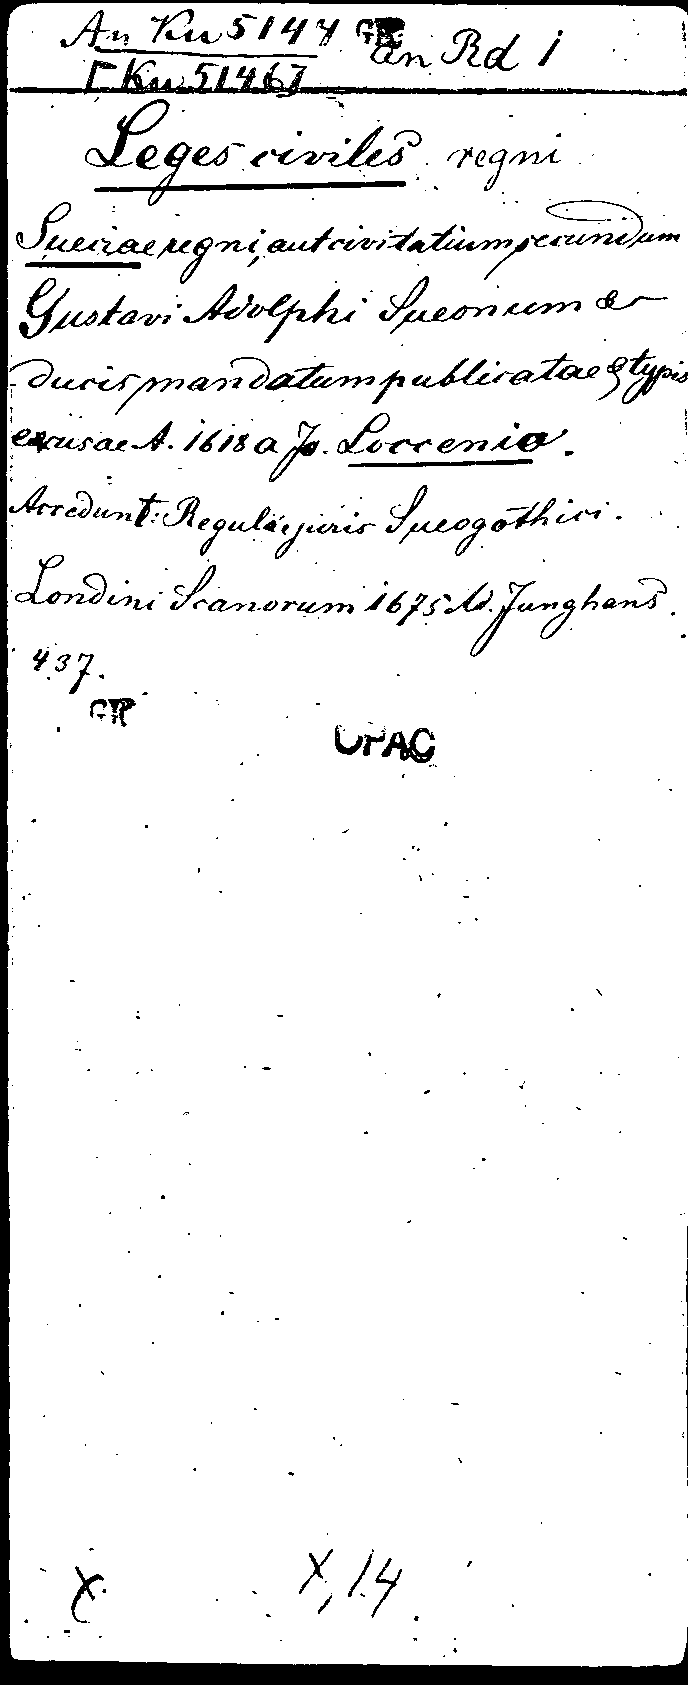 An Ku 5144 GR an Rd 1
Γ Ku 51467
Leges civiles regni
Sueciae regni, aut civitatium secundum
Gustavi Adolphi Sueonum &
ducis mandatum publicatae & typis
excusae A. 1618 a Jo. Loccenio.
Accedunt: Regulae juris Sueogothici.
Londini Scanorum 1675 Ad. Junghans.
437.
GR
OPAC
X. X, 14